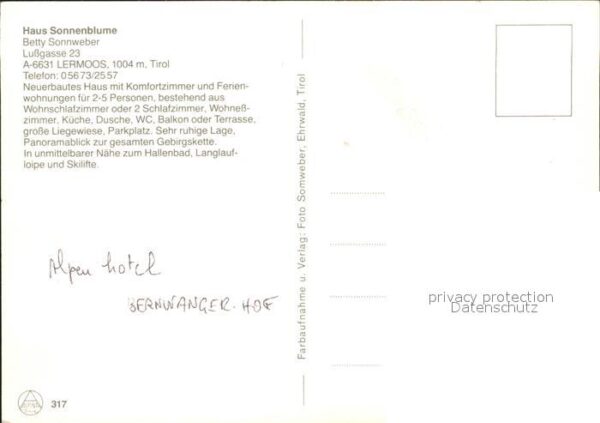 Haus Sonnenblume
Betty Sonnweber
Lußgasse 23
A-6631 LERMOOS, 1004 m, Tirol
Telefon: 05673/2557
Neuerbautes Haus mit Komfortzimmer und Ferien-
wohnungen für 2-5 Personen, bestehend aus
Wohnschlafzimmer oder 2 Schlafzimmer, Wohneß-
zimmer, Küche, Dusche, WC, Balkon oder Terrasse,
große Liegewiese, Parkplatz. Sehr ruhige Lage,
Panoramablick zur gesamten Gebirgskette.
In unmittelbarer Nähe zum Hallenbad, Langlauf-
loipe und Skilifte.
Alpen hotel
BERNWANGER-HOF
317
Farbaufnahme u. Verlag: Foto Somweber, Ehrwald, Tirol
privacy protection
Datenschutz